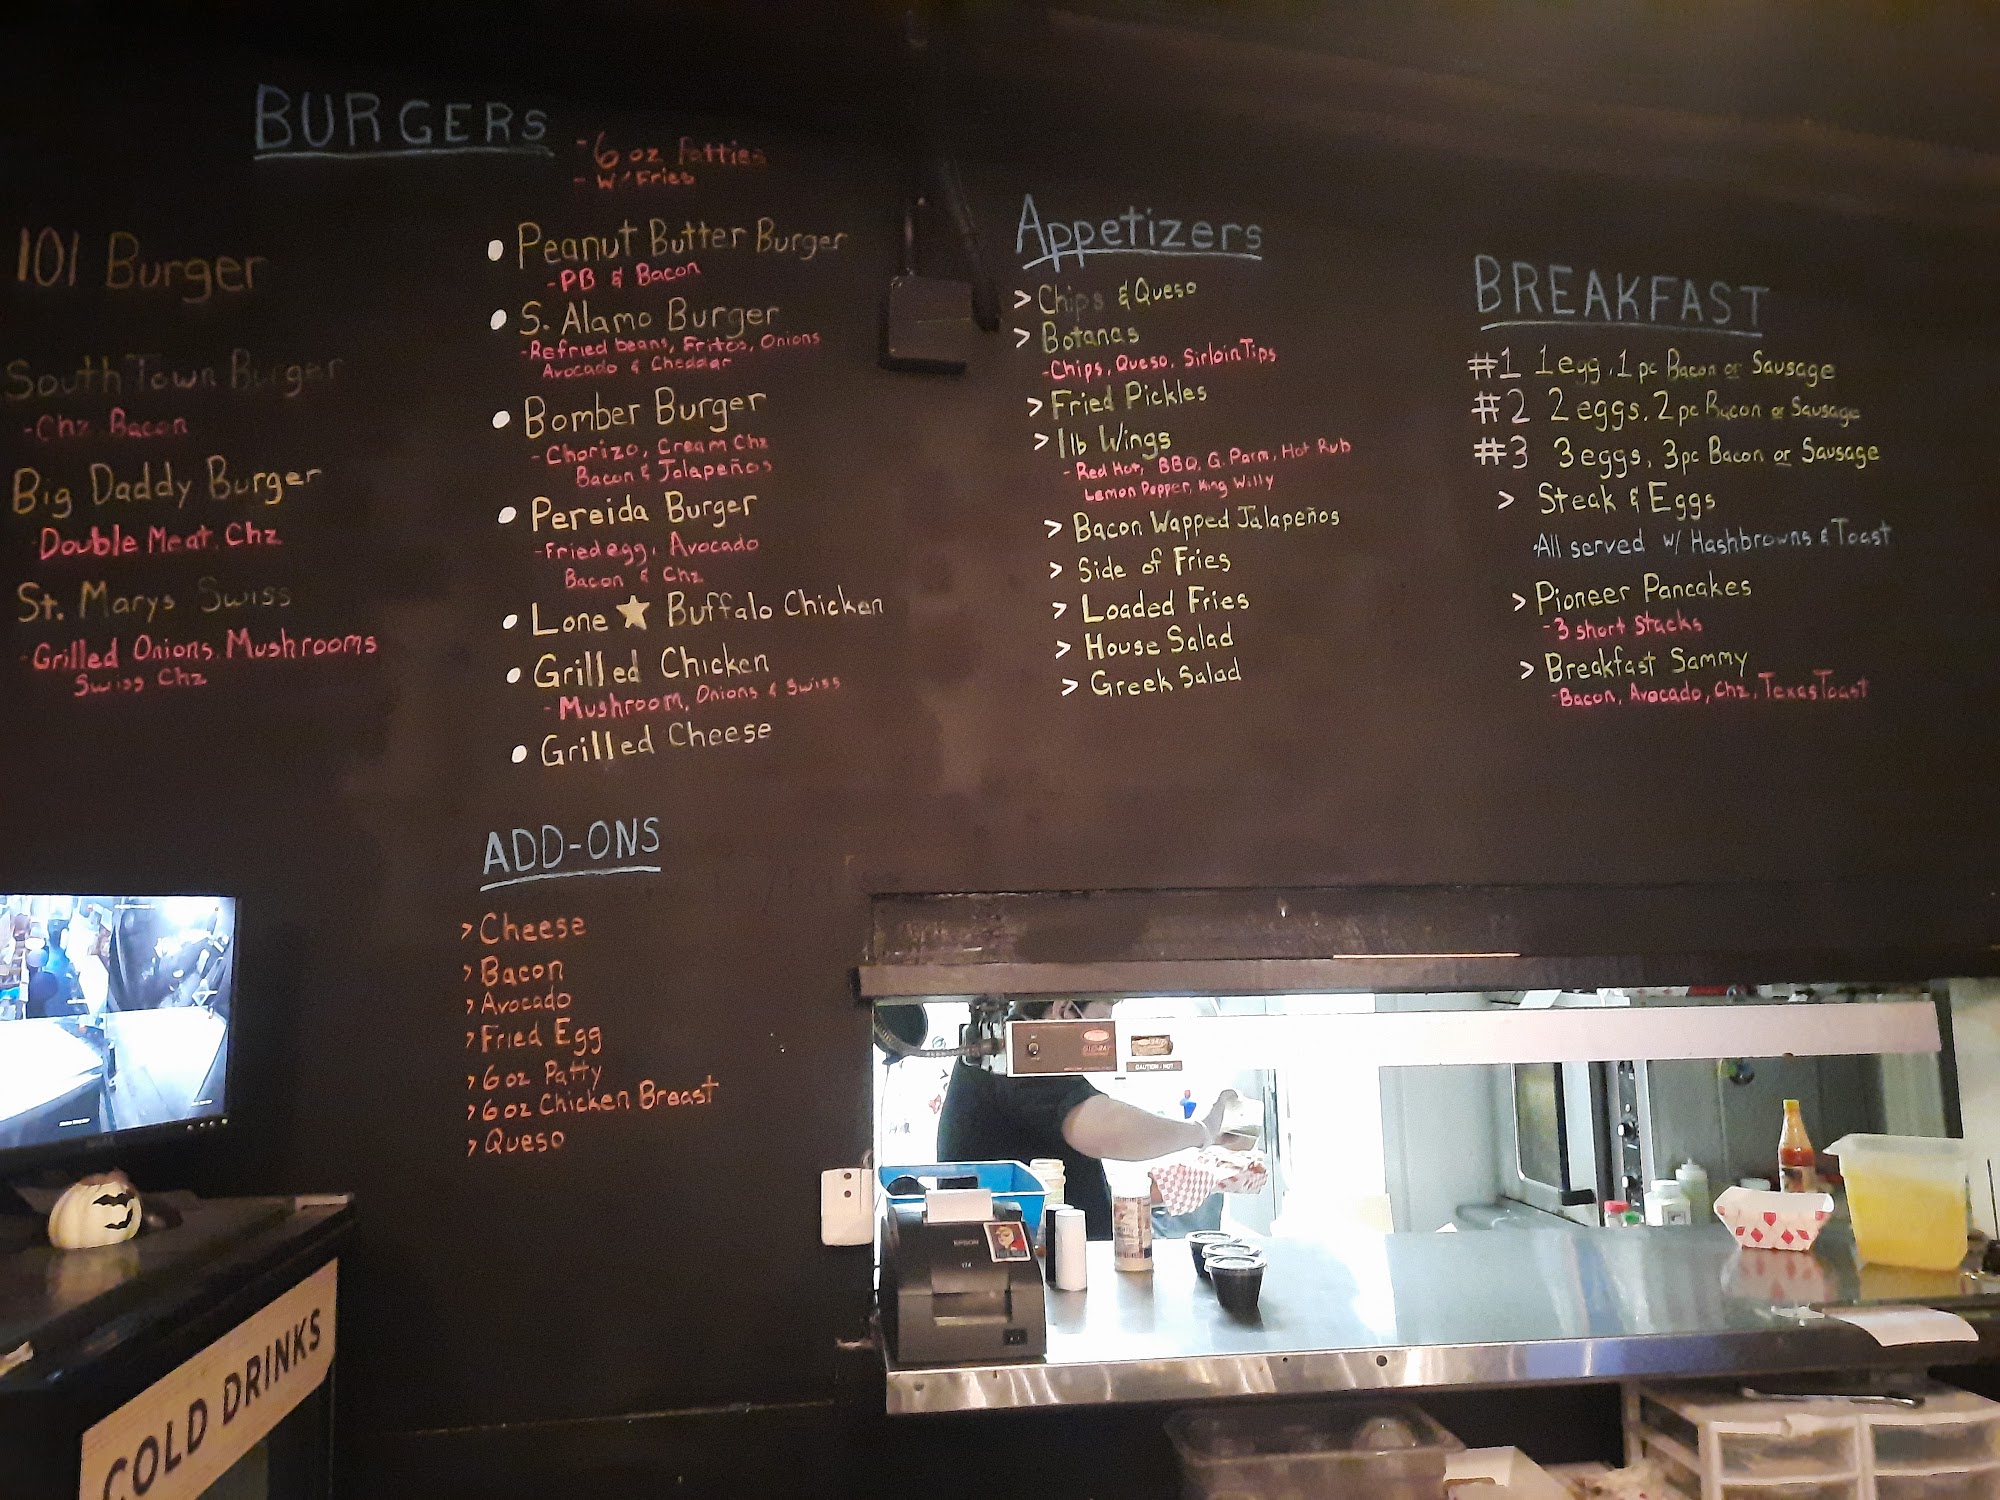 BURGERS
- 6 oz Patties
- W/ Fries
101 Burger
South Town Burger
- Chz Bacon
Big Daddy Burger
- Double Meat, Chz
St. Marys Swiss
- Grilled Onions, Mushrooms
Swiss Chz
• Peanut Butter Burger
- PB & Bacon
• S. Alamo Burger
- Refried beans, Fritos, Onions
Avocado & Cheddar
• Bomber Burger
- Chorizo, Cream Chz
Bacon & Jalapeños
• Pereida Burger
- Fried egg, Avocado
Bacon & Chz
• Lone ★ Buffalo Chicken
• Grilled Chicken
- Mushroom, Onions & Swiss
• Grilled Cheese
ADD-ONS
> Cheese
> Bacon
> Avocado
> Fried Egg
> 6 oz Patty
> 6 oz Chicken Breast
> Queso
Appetizers
> Chips & Queso
> Botanas
- Chips, Queso, Sirloin Tips
> Fried Pickles
> 1 lb Wings
- Red Hot, BBQ, G. Parm, Hot Rub
Lemon Pepper, King Willy
> Bacon Wapped Jalapeños
> Side of Fries
> Loaded Fries
> House Salad
> Greek Salad
BREAKFAST
#1 1 egg, 1 pc Bacon or Sausage
#2 2 eggs, 2 pc Bacon or Sausage
#3 3 eggs, 3 pc Bacon or Sausage
> Steak & Eggs
• All served w/ Hashbrowns & Toast
> Pioneer Pancakes
- 3 short stacks
> Breakfast Sammy
- Bacon, Avocado, Chz, Texas Toast
CAUTION - HOT
EPSON
COLD DRINKS